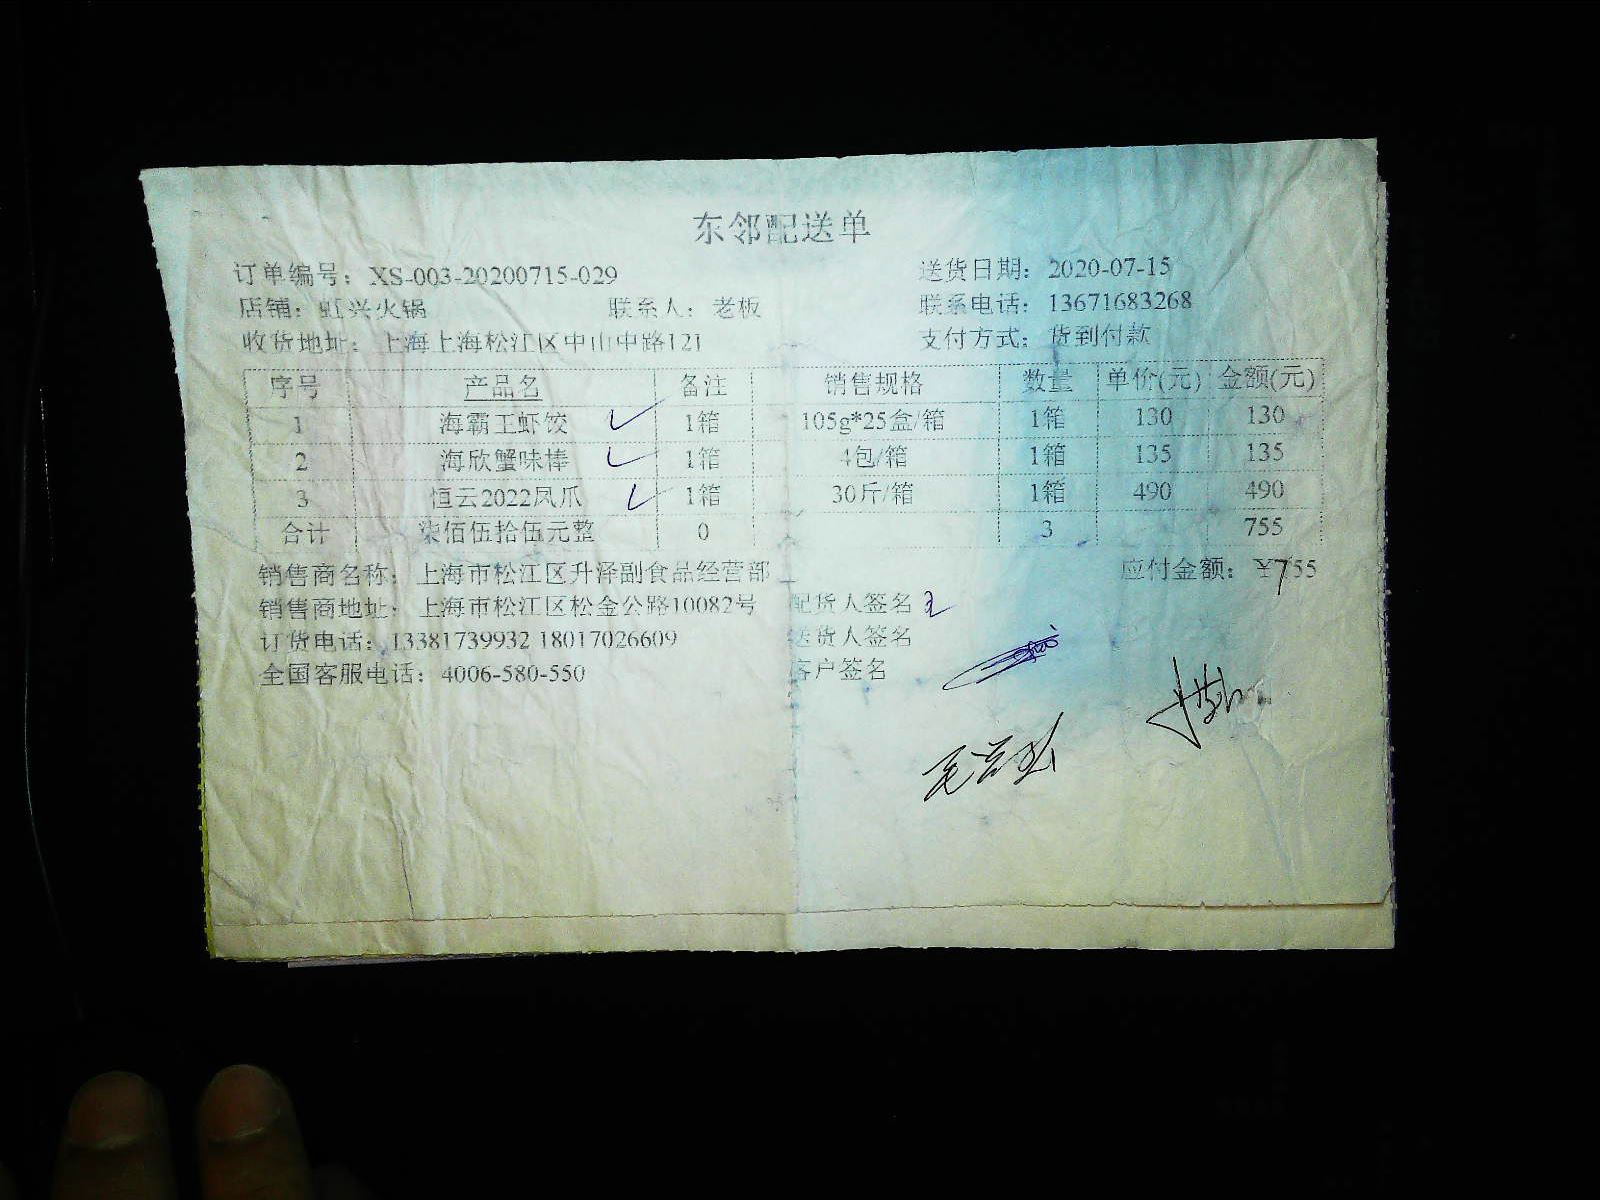 东邻配送单
订单编号：XS-003-20200715-029 送货日期：2020-07-15
店铺：虹兴火锅 联系人：老板 联系电话：13671683268
收货地址：上海上海松江区中山中路121 支付方式：货到付款
序号 产品名 备注 销售规格 数量 单价(元) 金额(元)
1 海霸王虾饺 1箱 105g*25盒/箱 1箱 130 130
2 海欣蟹味棒 1箱 4包/箱 1箱 135 135
3 恒云2022凤爪 1箱 30斤/箱 1箱 490 490
合计 柒佰伍拾伍元整 0 3 755
销售商名称：上海市松江区升泽副食品经营部 应付金额：¥755
销售商地址：上海市松江区松金公路10082号 配货人签名
订货电话：13381739932 18017026609 送货人签名
全国客服电话：4006-580-550 客户签名